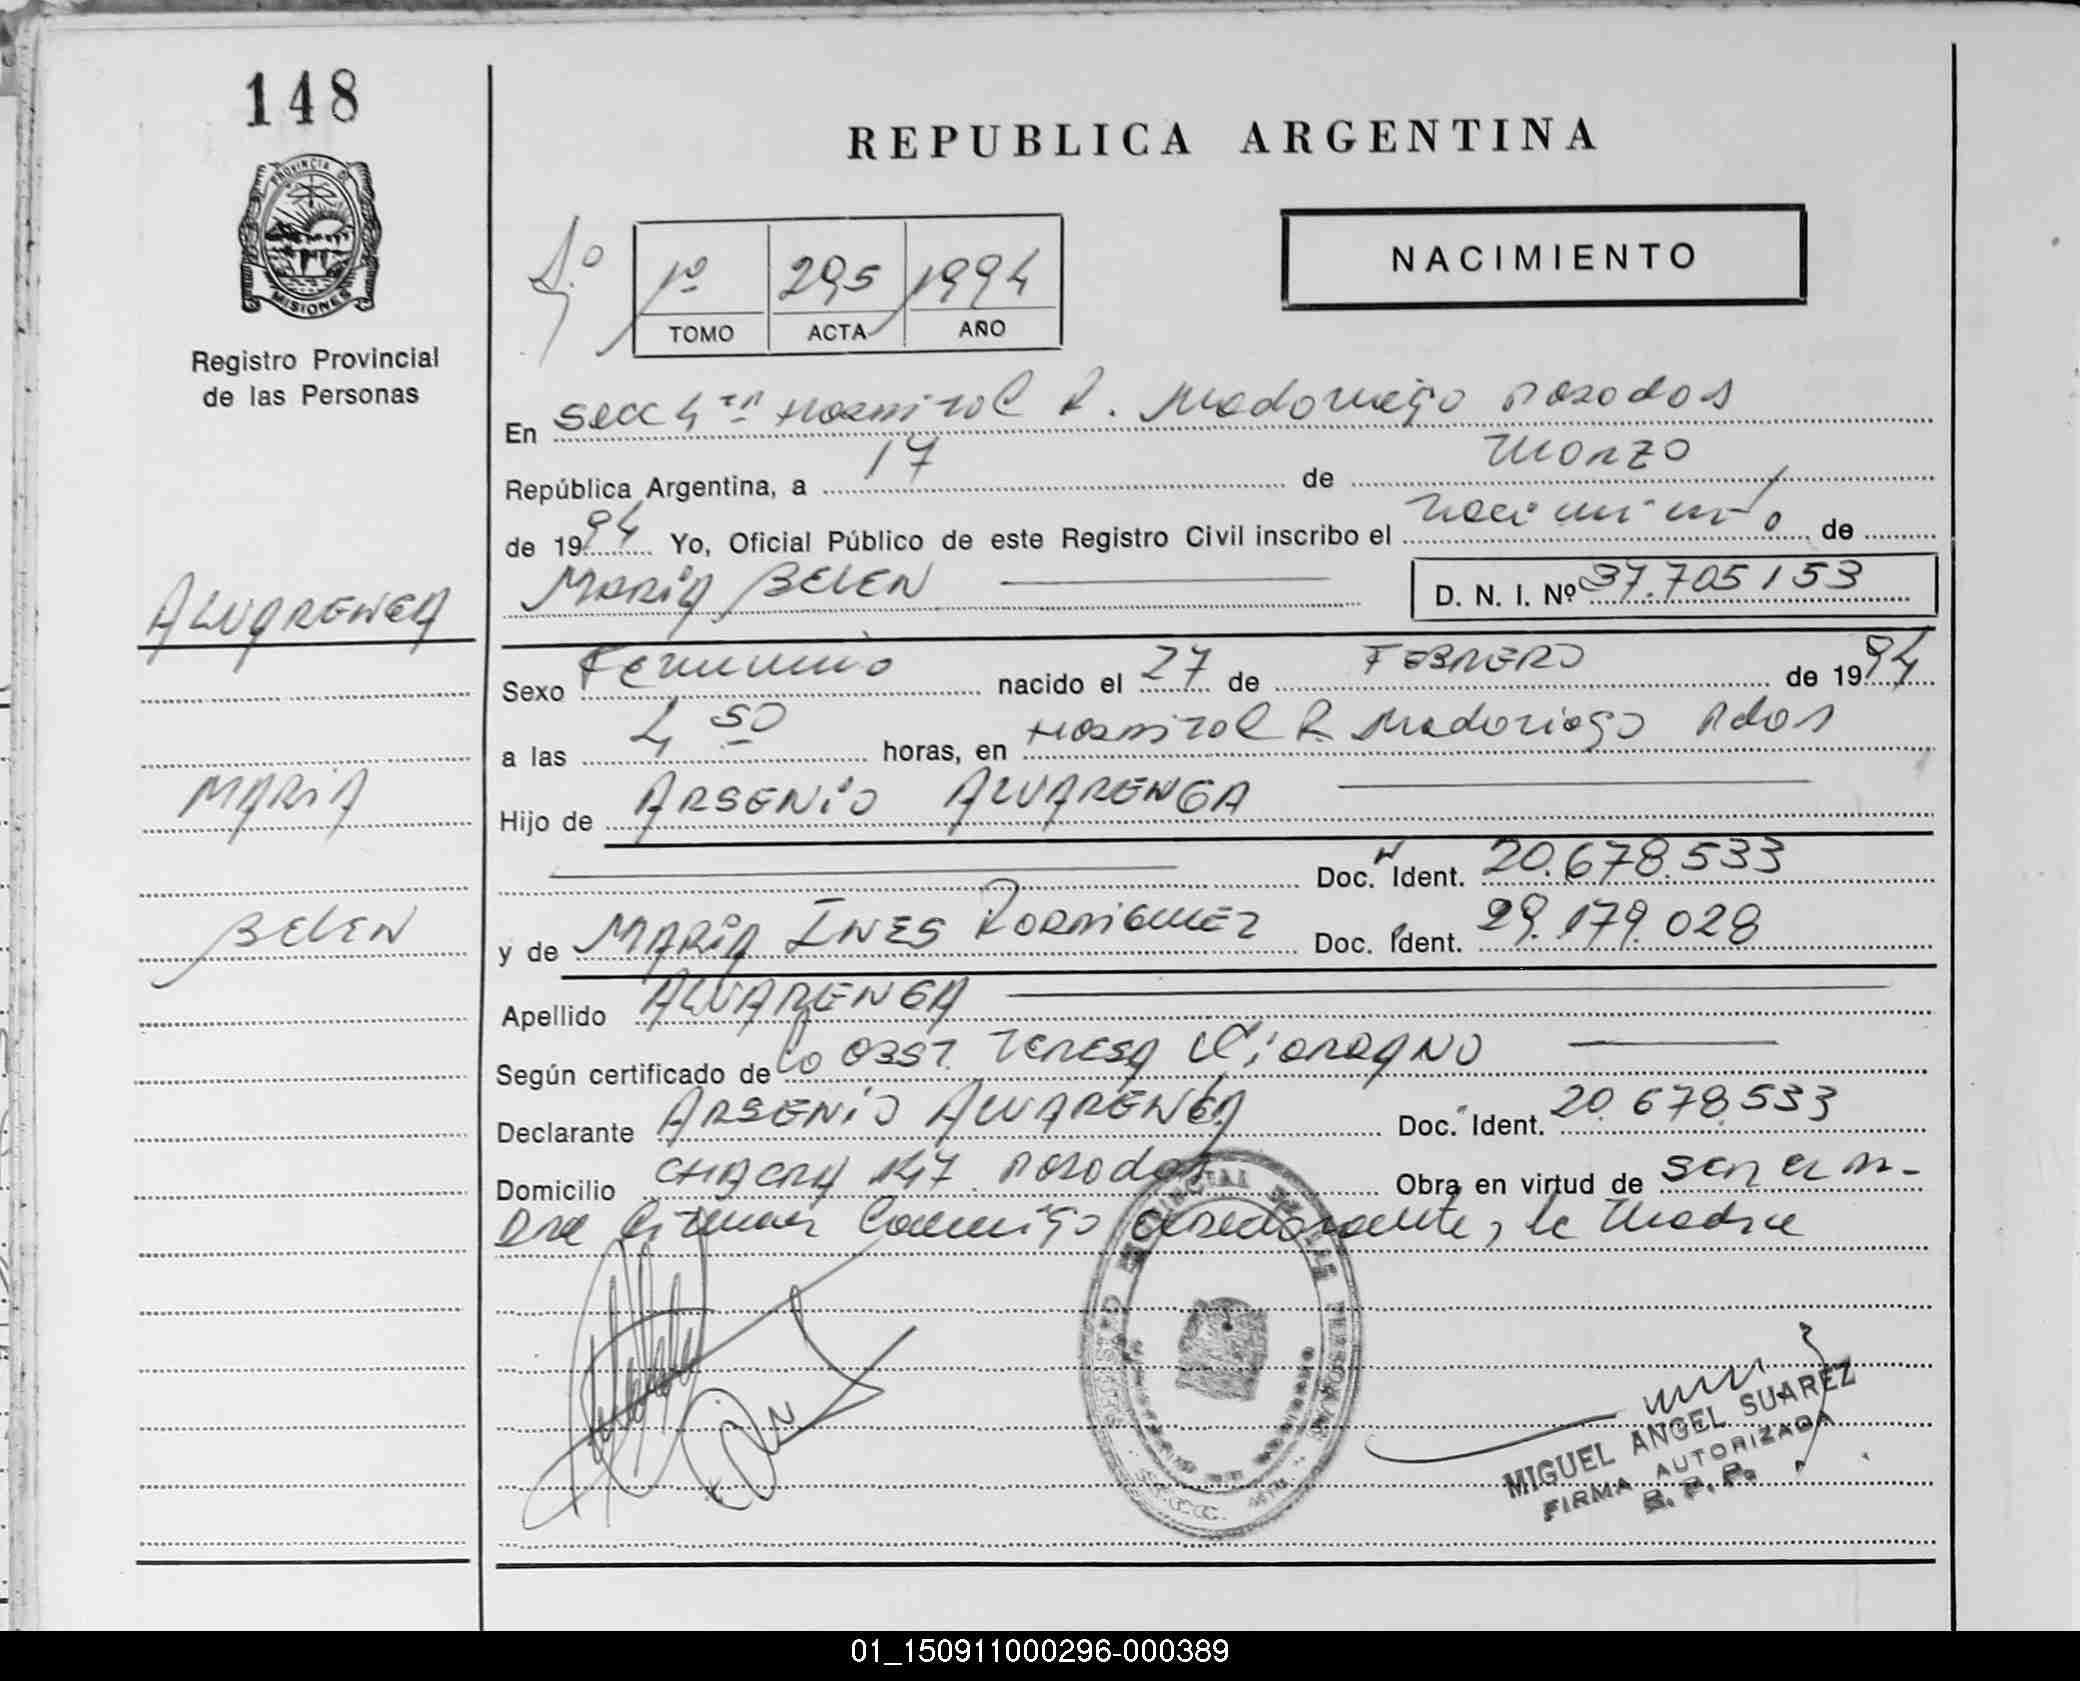 148
PROVINCIA DE
MISIONES
Registro Provincial
de las Personas
REPUBLICA ARGENTINA
NACIMIENTO
4º
1º 295 1994
TOMO ACTA AÑO
En Secc 4ta Hospital R. Madariaga Posadas
República Argentina, a 17 de Marzo
de 1994 Yo, Oficial Público de este Registro Civil inscribo el nacimiento de
MARIA BELEN D. N. I. Nº 37.705153
ALVARENGA
Sexo Femenino nacido el 27 de FEBRERO de 1994
a las 4 50 horas, en Hospital R. Madariaga Pdas
MARIA
Hijo de ARSENIO ALVARENGA
Doc. Ident. 20.678.533
BELEN
y de MARIA INES RODRIGUEZ Doc. Ident. 29.179.028
Apellido ALVARENGA
Según certificado de la OBST. TERESA
Declarante ARSENIO ALVARENGA Doc. Ident. 20.678.533
Domicilio CHACRA 147 Posadas Obra en virtud de ser el pa-
dre firman conmigo declarante, la madre
MIGUEL ANGEL SUAREZ
FIRMA AUTORIZADA
R. P. P.
01_150911000296-000389